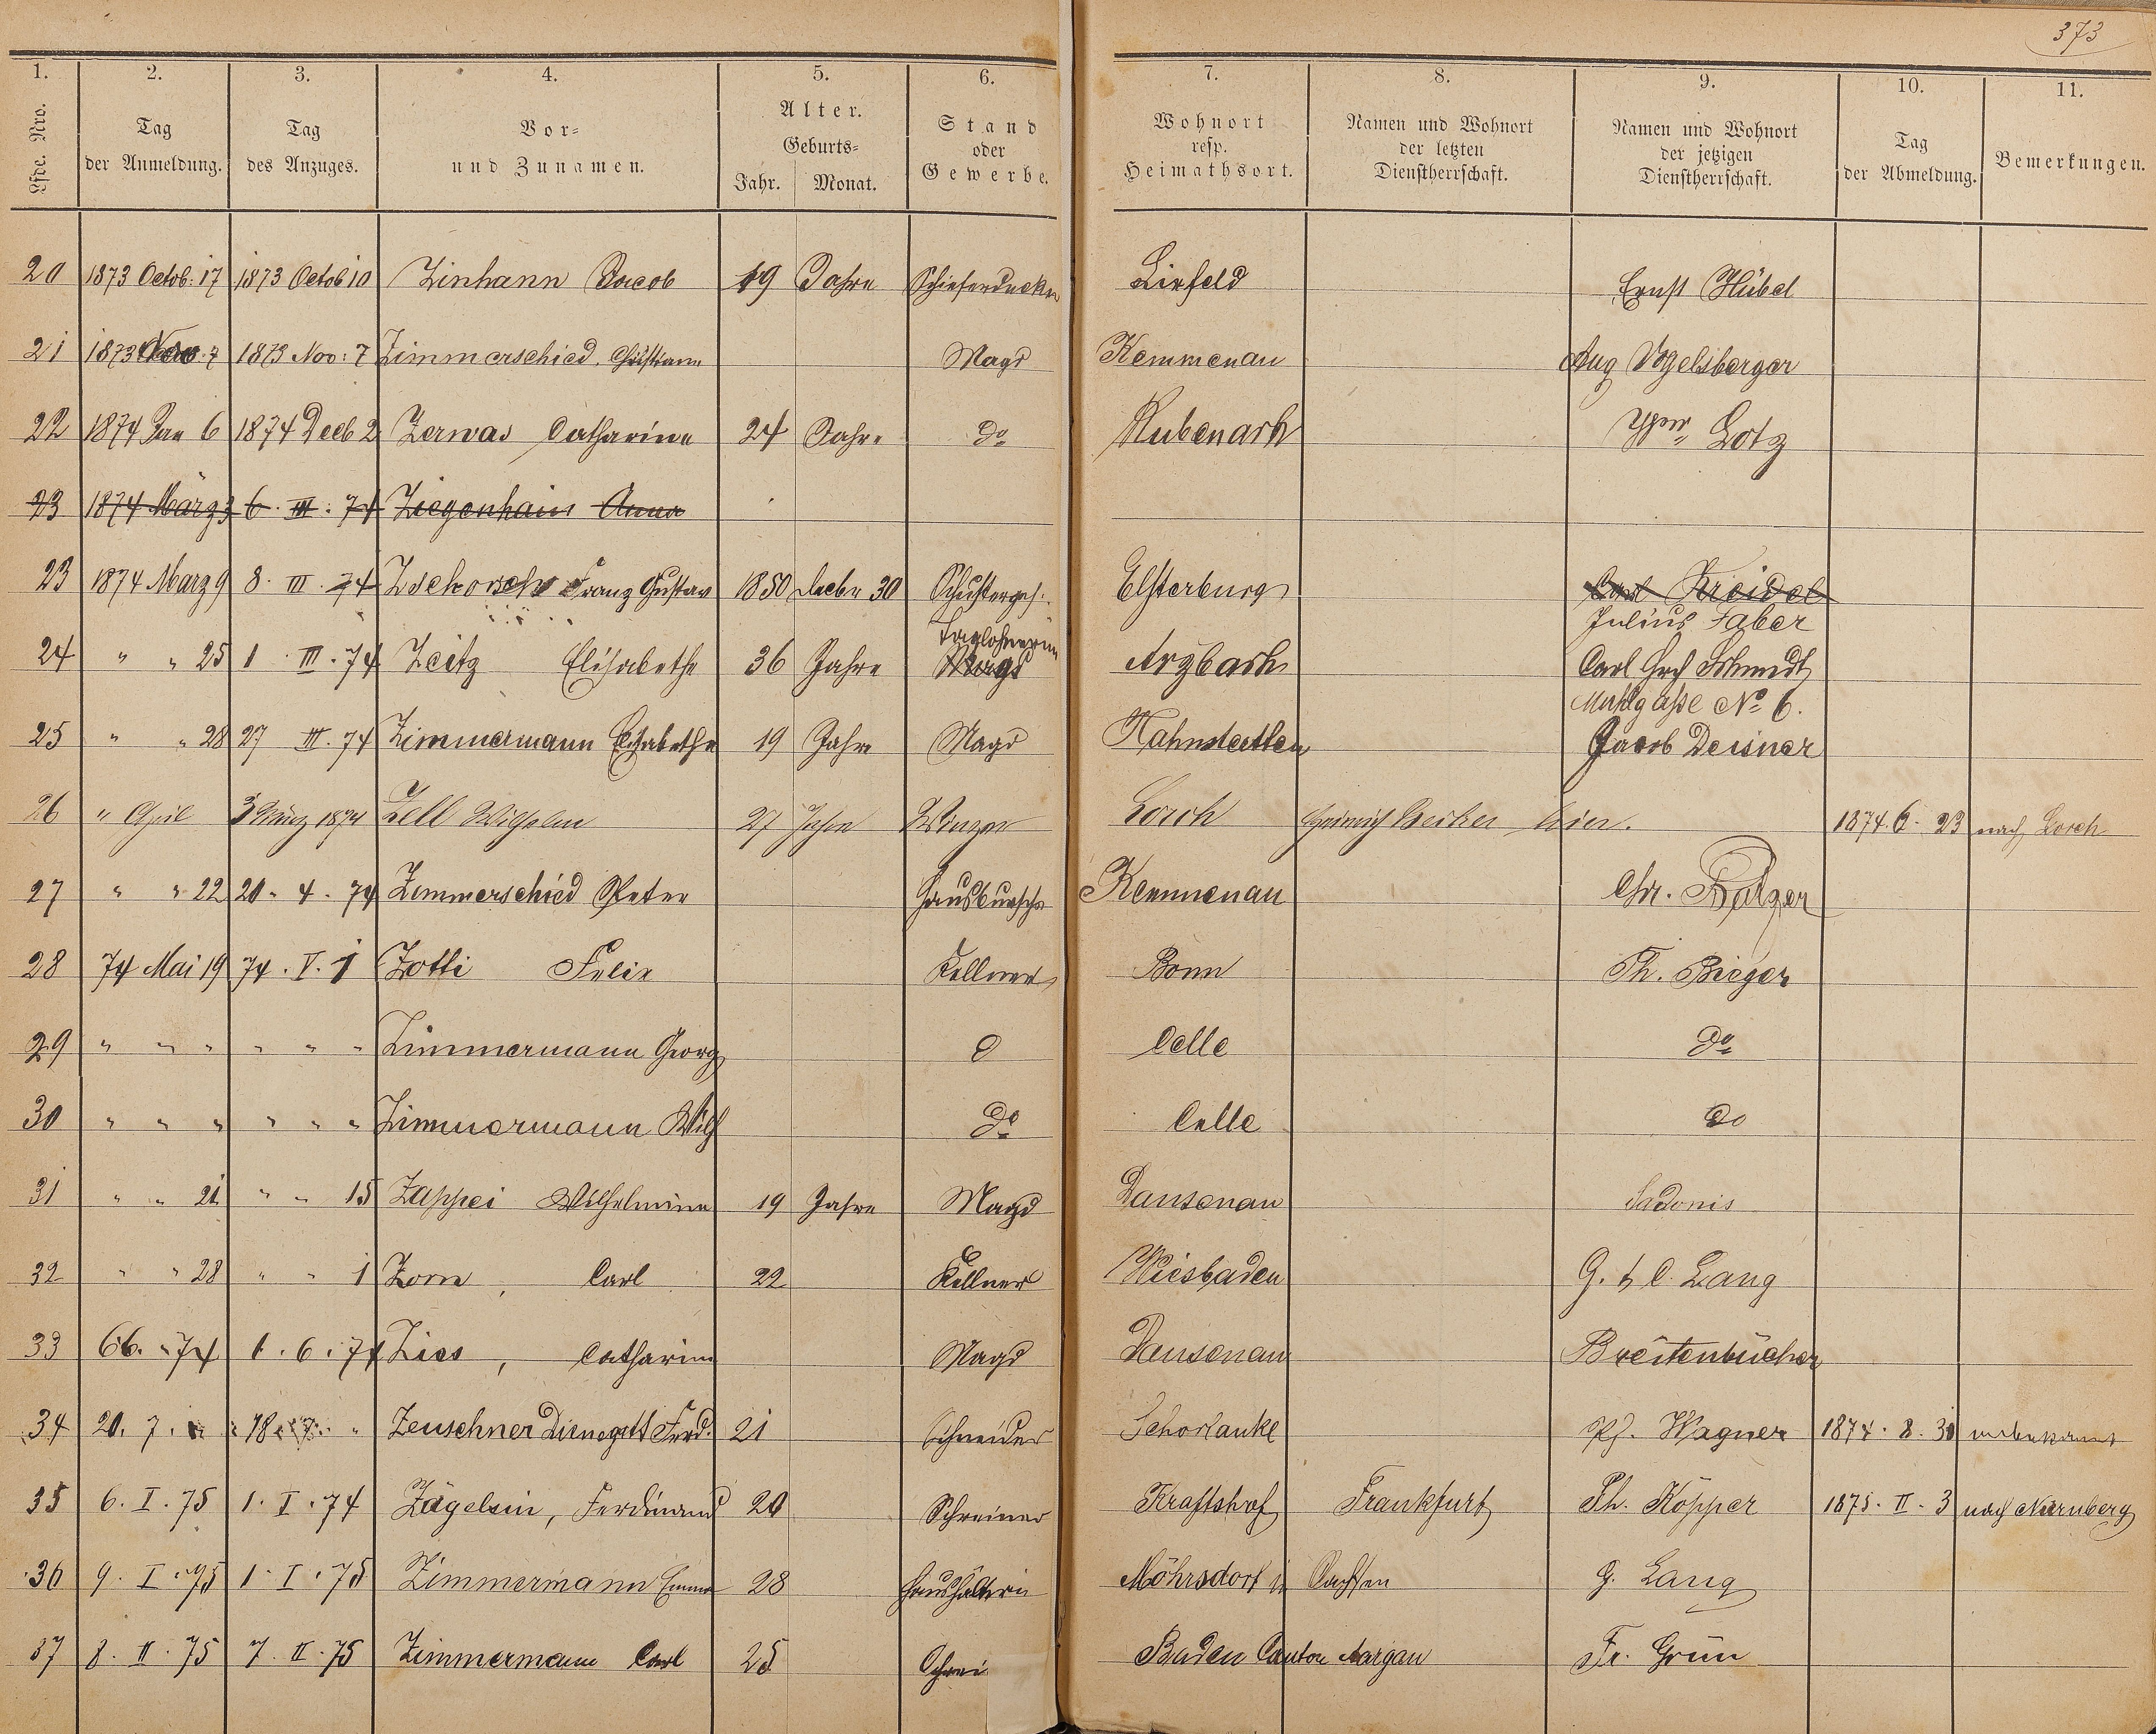 373
1. 2. 3. 4. 5. 6. 7. 8. 9. 10. 11.
Lfde. Nro. Tag der Anmeldung. Tag des Anzuges. Vor- und Zunamen. Alter. Geburts- Jahr. Monat. Stand oder Gewerbe. Wohnort resp. Heimathsort. Namen und Wohnort der letzten Dienstherrschaft. Namen und Wohnort der jetzigen Dienstherrschaft. Tag der Abmeldung. Bemerkungen.
20 1873 Octob: 17 1873 Octob 10 Zinhann Jacob 19 Jahre Schieferdecker Linfeld Ernst Hübel
21 1873 Nov. 7 1873 Nov: 7 Zimmerschied Christiane Magd Kemmenau Aug Vogelsberger
22 1874 Jan 6 1874 Decb 2 Zerwas Catharine 24 Jahre do Hubenach Lotz
23 1874 März 3 6. III. 74 Ziegenhain Anna
23 1874 März 9 8. III. 74 Zschorsch Franz Gustav 1850 Decbr 30 Schusterges. Elsterburg Carl Kreidel
Julius Faber
24 " " 25 1 III. 74 Zeitz Elisabethe 36 Jahre Taglöhnerin Magd Arzbach Carl Schmidt
Mühlgasse No 6.
25 " " 28 27 III. 74 Zimmermann Elisabethe 19 Jahre Magd Hahnstetten Jacob Deisner
26 " April 3 März 1874 Zell Wilhelm 27 Jahre Winzer Lorch Heinrich Becker hier. 1874. 6. 23 nach Lorch
27 " " 22 20. 4. 74 Zimmerschied Peter Hausbursche Kemmenau Chr. Balzer
28 74 Mai 19 74. V. 1 Zotti Felix Kellner Bonn Th. Bieger
29 " " " " " " Zimmermann Georg Celle do
30 " " " " " " Zimmermann Wilh do Celle do
31 " " 21 " " 15 Zappei Wilhelmine 19 Jahre Magd Dausenau Sadonis
32 " " 28 " " 1 Zorn, Carl 22 Kellner Wiesbaden G. & C. Lang
33 6 6. " 74 1. 6. 74 Zies, Catharina Magd Dausenau Breitenbücher
34 20. 7. " 18. 7. " Zeuschner Dienegott Ferd. 21 Schneider Schorlanke Ph. Wagner 1874. 8. 30 unbekannt
35 6. I. 75 1. I. 74 Zägelein, Ferdinand 20 Schreiner Kraftshof Frankfurt Ph. Köpper 1875. II. 3 nach Nürnberg
36 9. I. 75 1. I. 75 Zimmermann Emma 28 Haushälterin Möhrsdorf in Sachsen G. Lang
37 8. II. 75 7. II. 75 Zimmermann Carl 25 Schrei Baden Canton Aargau Fr. Grün